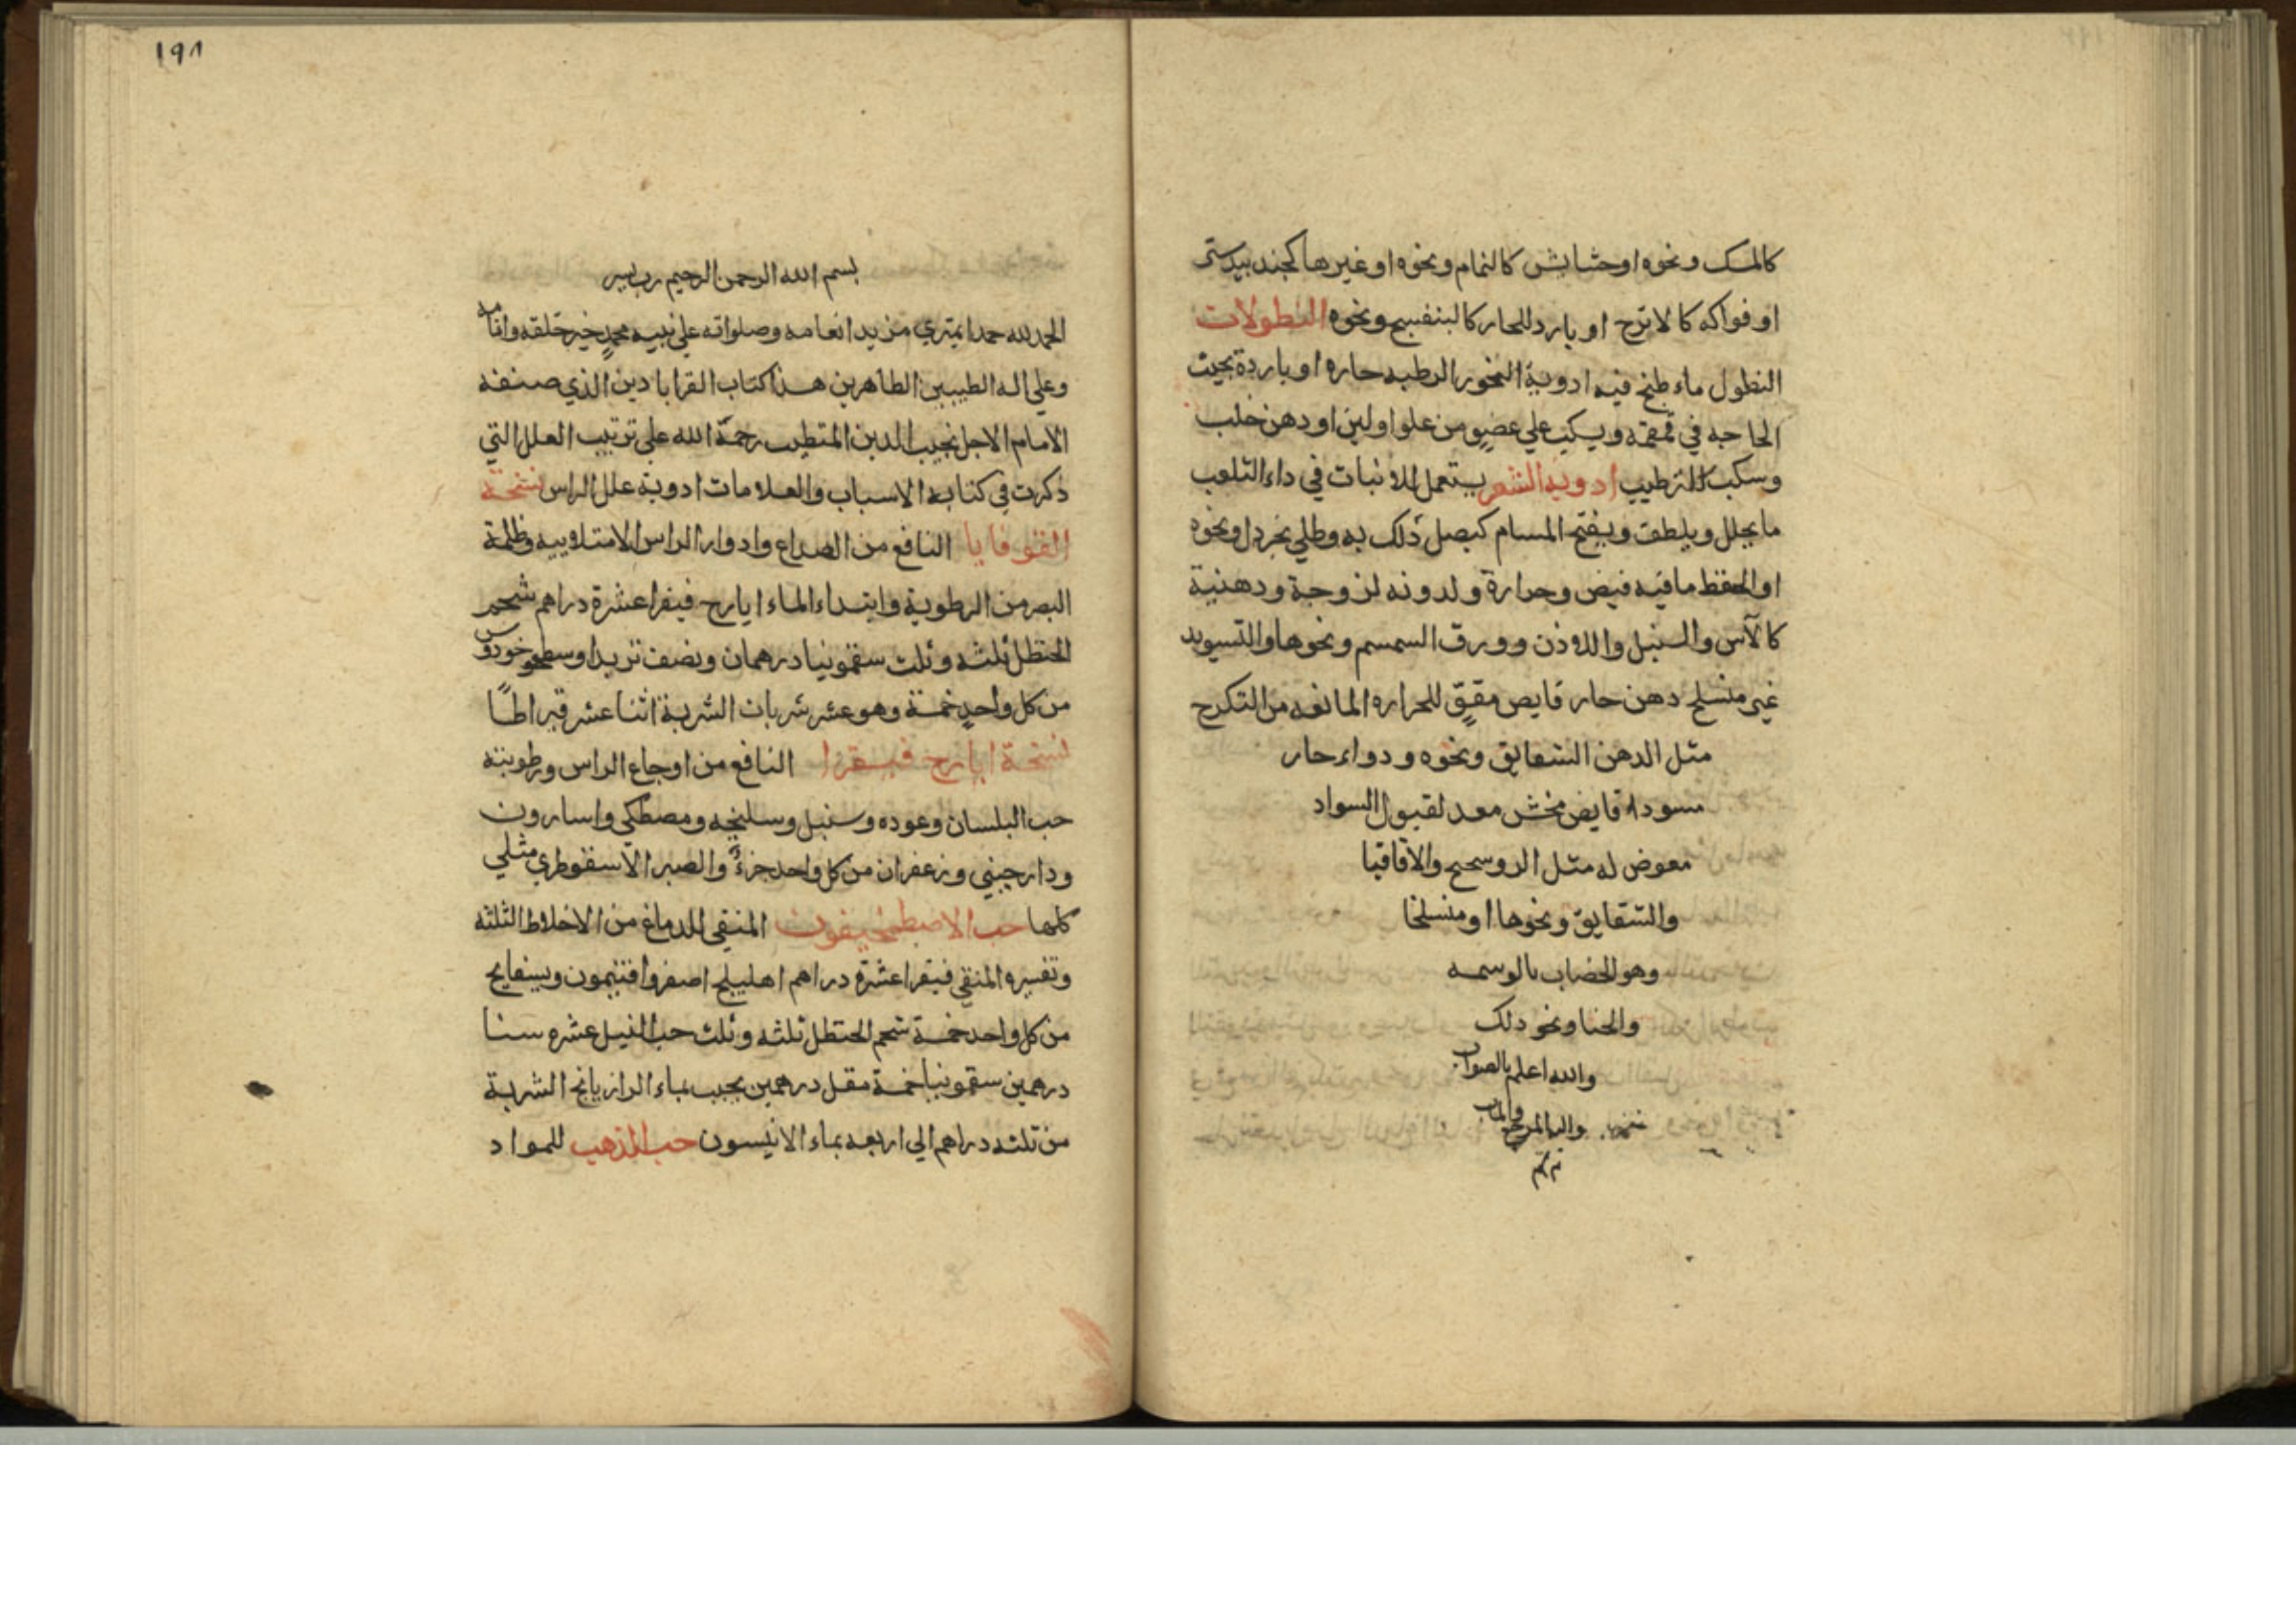 كالمسك ونحوه اوحشايش كالنمام ونحوه اوغيرها كجندبيدستر
او فواكه كالاترج او بارد للحار كالبنفسج ونحوه النطولات
النطول ماء طبخ فيه ادوية البخور الرطبه حاره او باردة بحيث
الحاجه في قمقمه ويسكب علي عضو من علو اولبن اودهن حلب
وسكب للترطيب ادويه الشعر يستعمل للانبات في داء الثلعب
ما يحلل ويلطف ويفتح المسام كبصل ذلك به وطلي بخردل ونحوه
او الحفظ مافيه قبض وحرارة ولدونه لزوجة ودهنية
كالآس والسنبل واللاذن وورق السمسم ونحوها والتسويد
غير منسلخ دهن حار قابض مقوٍّ للحراره المانعه من التكرج
مثل الدهن الشقايق ونحوه ودواء حار
مسوداء قابض مخش معد لقبول السواد
معوض له مثل الروسختج والاقاقيا
والشقايق ونحوها او منسلخا
وهو الخضاب بالوسمه
والحنا ونحو دلك
والله اعلم بالصواب
واليه المرجع والماب
تم
١٩٨
بسم الله الرحمن الرحيم رب يسر
الحمد لله حمدا يمتري مزيد انعامه وصلواته علي نبيه محمدٍ خير خلقه وانامه
وعلي اله الطيبين الطاهرين هذا كتاب القراباد ين الذي صنفه
الامام الاجل نجيب الدين المتطبب رحمة الله علي ترتيب العلل التي
ذكرت في كتابه الاسباب والعلامات ادوية علل الراس نسخة
القوفايا النافع من الصداع وادوار الراس الامتلاوييه وظلمة
البصر من الرطوبة وابتداء الماء ايارج فيقرا عشرة دراهم شحم
الحنظل ثلثه وثلث سقمونيا درهمان ونصف تربد واسطوخودوس
من كل واحدٍ خمسة وهو عشر شربات الشربة اثنا عشر قيراطًا
نسخة ايارج فيقرا النافع من اوجاع الراس ورطوبته
حب البلسان وعوده وسنبل وسليخه ومصطكي واسارون
ودارجيني وزعفران من كل واحد جزءٌ والصبر الاسقوطري مثلي
كلها حب الاصطمخيقون المنقي للدماغ من الاخلاط الثلثه
وتفسيره المنقي فيقرا عشرة دراهم اهليلج اصفر وافتيمون وبسفايج
من كل واحد خمسة شحم الحنظل ثلثه وثلث حب النيل عشره سنا
درهمين سقمونيا خمسة مقل درهمين يحبب بماء الرازيانج الشربة
من ثلثه دراهم الي اربعه بماء الانيسون حب المذهب للمواد